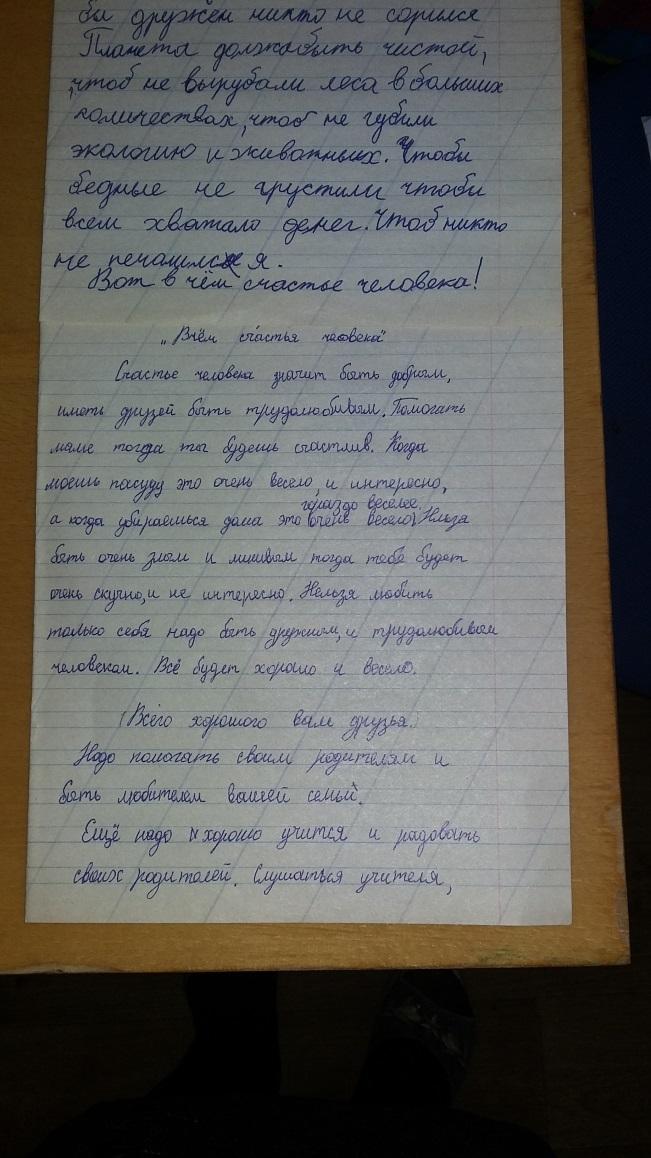 бы дружен никто не сорился
Планета должна быть чистой,
чтоб не вырубали леса в больших
количествах, чтоб не губили
экологию и животных. Чтобы
бедные не грустили чтобы
всем хватало денег. Чтоб никто
не печалился.
Вот в чём счастье человека!
„Вчём счастья человека"
Счастье человека значит быть добрым,
иметь друзей быть трудолюбивым. Помогать
маме тогда ты будешь счастлив. Когда
моешь посуду это очень весело, и интересно,
гораздо веселее
а когда убираешься дома это (очень весело). Нльзя
быть очень злым и линивым тогда тебе будет
очень скучно, и не интересно. Нельзя любить
только себя надо быть дружном, и трудолюбивым
человеком. Всё будет хорошо и весело.
(Всего хорошого вам друзья.)
Надо помогать своим родителям и
быть любителем вашей семьй.
Ещё надо хорошо учится и радовать
своих родителей. Слушаться учителя,